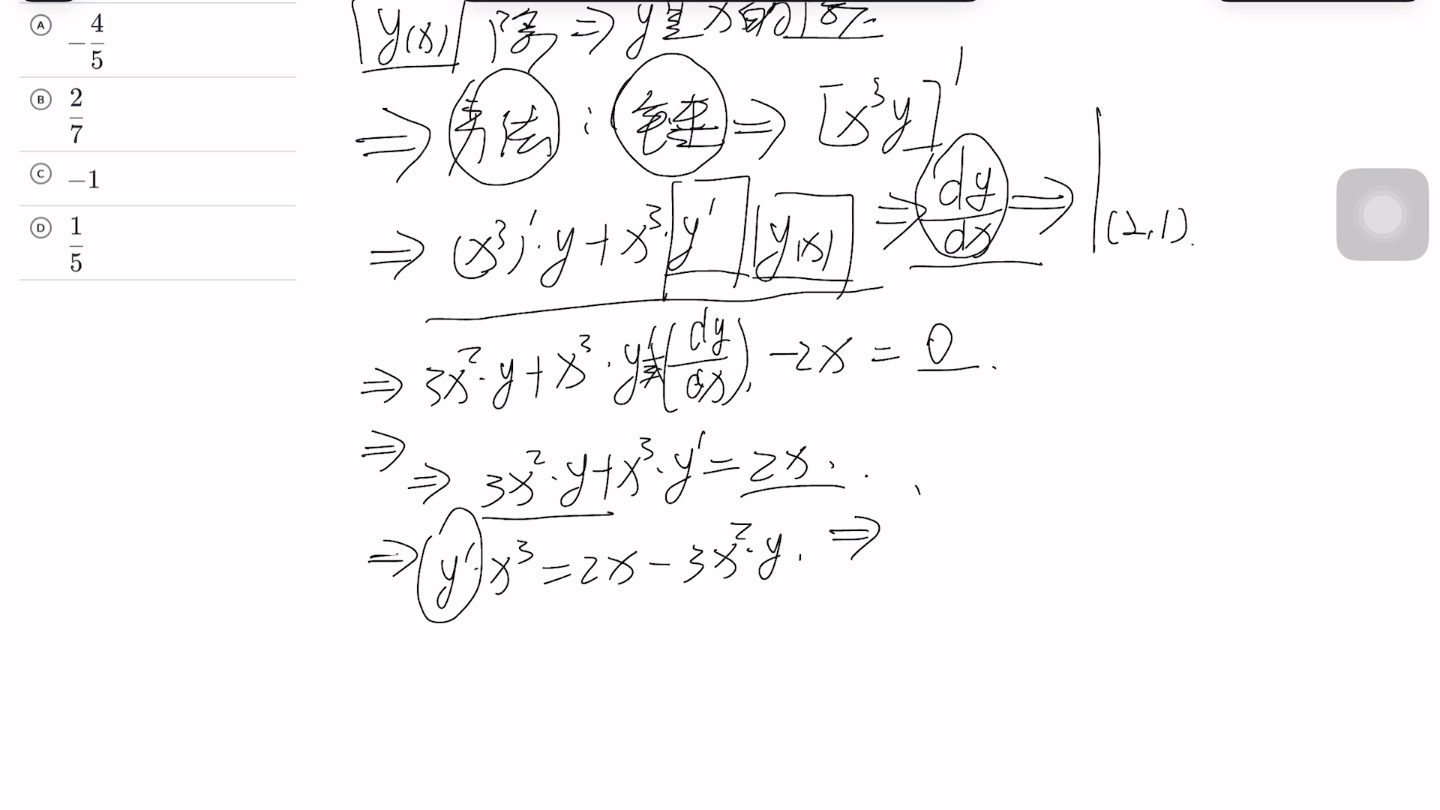 A -4/5
B 2/7
C -1
D 1/5
y(x) 隐 ⇒ y是x的
⇒ 方法 : 链 ⇒ [x³y]'
⇒ (x³)'·y+x³·y' y(x) ⇒ dy/dx ⇒ |(2,1).
⇒ 3x²·y+x³·y'(dy/dx). -2x = 0.
⇒
⇒ 3x²·y+x³·y'=2x.
⇒ y'·x³=2x-3x²·y. ⇒